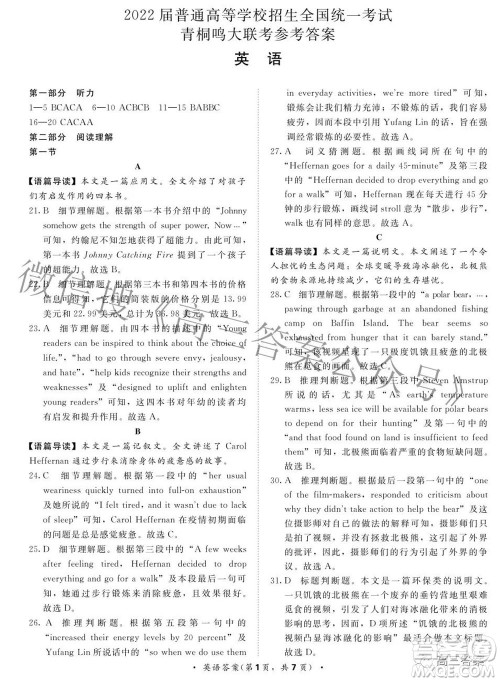 2022 届普通高等学校招生全国统一考试
青桐鸣大联考参考答案
英 语
第一部分 听力
1—5 BCACA 6—10 ACBCB 11—15 BABBC
16—20 CACAA
第二部分 阅读理解
第一节
A
【语篇导读】本文是一篇应用文。全文介绍了对孩子
们有启发作用的四本书。
21. B 细节理解题。根据第一本书介绍中的“Johnny
somehow gets the strength of super power. Now…”
可知，约翰尼不知怎的就获得了超能力。所以
第一本书 Johnny Catching Fire 讲述了一个孩子
的超能力。故选 B。
22. B 细节理解题。根据第二本书和第三本书的价格
信息可得知，它们的简装版的价格分别是 13.99
美元和 22.99 美元，总计是 36.98 美元。故选 B。
23. A 细节理解题。由四本书的描述可知，“Young
readers can be inspired to think about the choice of
life.”，“hard to get through over envy, jealousy,
and hate”，“help kids recognize their emotions”
and “designed to uplift and enlighten
young readers” 可知，四本书对年幼的读者均具
有启发和提升作用。故选 A。
B
【语篇导读】本文是一篇记叙文。全文讲述了 Carol
Heffernan 通过步行来消除身体的疲惫感的故事。
24. C 细节理解题。根据第一段中的“her usual
weariness quickly turned into full-on exhaustion”
及其解释“I felt tired, and it was not due to lack
of sleep” 可知，Carol Heffernan 在疫情初期面临
的问题是总感到很疲惫。故选 C。
25. D 细节理解题。根据第三段中的“A few weeks
after feeling tired, Heffernan decided to drop
everything and go for a walk” 及本段最后一句可
知，她通过散步来解决自己的问题。故选 D。
26. A 推理判断题。根据第五段第一句中的
“increased their energy levels by 20 percent” 及
Yufang Lin 所说的“so when we do use them
in everyday activities, we feel less tired” 可知，
锻炼的人们会精力充沛、不锻炼的人们会容易
疲劳。所以二者的不同在于 Yufang Lin
所提到的能量水平。故选 A。
27. A 词义猜测题。根据画线词所在句中的
“Heffernan goes for a daily 45-minute” 及第三段
中的“Heffernan decided to drop everything and go
for a walk” 可知，Heffernan 现在每天进行 45
分钟的步行锻炼。所以 stroll 意为“散步，步行”。
故选 A。
C
【语篇导读】本文是一篇说明文。文章主要讲述了一个令
人担忧的生态问题：全球变暖导致海冰融化，北极熊
的食物来源持续减少，它们的生存受到威胁。
28. C 细节理解题。根据第一段中的“a polar bear, …,
pawing through garbage at an abandoned fishing
camp on Baffin Island. The bear seems so
exhausted from hunger that it can barely move”
可知，该视频呈现了一只极度饥饿且疲惫的北极
熊在觅食的情景。故选 C。
29. B 推理判断题。根据第三段中 Steven Amstrup
所说的话，尤其是“As earth's temperatures
rise, less sea ice will be available for polar bears
to use” 及第四段第一句中的“
and that food found on land is insufficient to feed
them” 可知，北极熊面临着严重的食物短缺问题。
故选 B。
30. A 推理判断题。根据第五段第一句中的“one of
the film-makers, responded to criticism about
why they didn't do anything to help the bear” 及
这位摄影师对此做出的解释可知，摄影师们只
是真实地记录了大自然中正在发生的事情，无法
改变结果，因此，摄影师们的行为是合理的。
故选 A。
31. D 标题判断题。本文为环保类的说明文。
一只饥饿的北极熊在废弃的垂钓营地觅食的情
景引发了人们对海冰融化带来的影响的思考，
文章主要讲述了海冰融化对北极熊造成的影响。
故选 D。
英语答案(第 1 页，共 7 页)